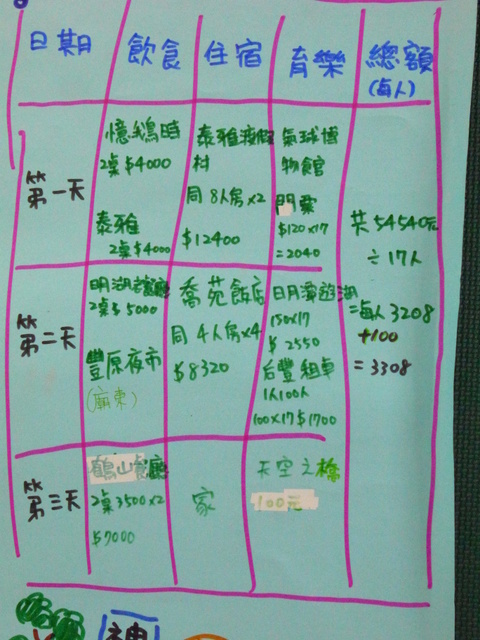 日期
飲食
住宿
育樂
總額
(每人)
第一天
憶鵝時
2桌$4000
泰雅
2桌$4000
泰雅渡假
村
同8人房×2
$12400
氣球博
物館
門票
$120×17
=2040
共54540元
÷17人
=每人3208
+100
=3308
第二天
明湖老餐廳
2桌$5000
豐原夜市
(廟東)
喬苑飯店
同4人房×4
$8320
日月潭遊湖
150×17
$2550
后豐租車
1人100人
100×17$1700
第三天
鶴山餐廳
2桌3500×2
$7000
家
天空之橋
100元
神